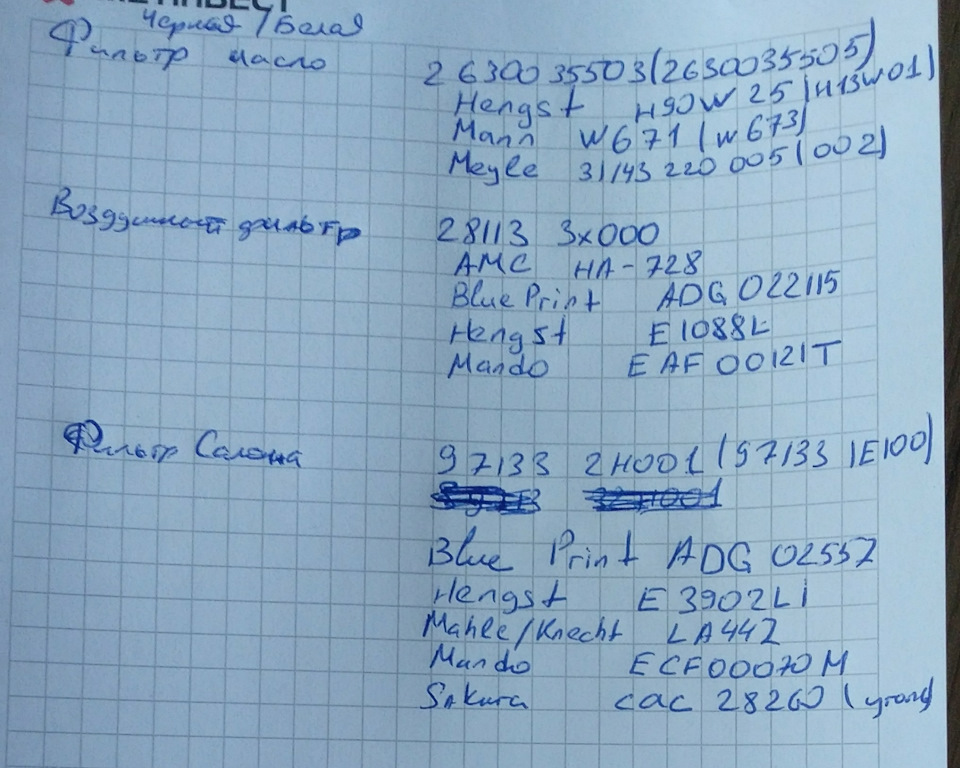 Черная/Белая
Фильтр масло 26300 35503 (26300 35505)
Hengst H90W 25 (H13W01)
Mann W671 (W673)
Meyle 31/143 220 005 (002)
Воздушный фильтр 28113 3x000
AMC HA-728
Blue Print ADG 022115
Hengst E1088L
Mando EAF 00121T
Фильтр Салона 97133 2H001 (97133 1E100)
Blue Print ADG 02557
Hengst E 3902Li
Mahle/Knecht LA442
Mando ECF00070M
SAkura CAC 28260 (уголь)